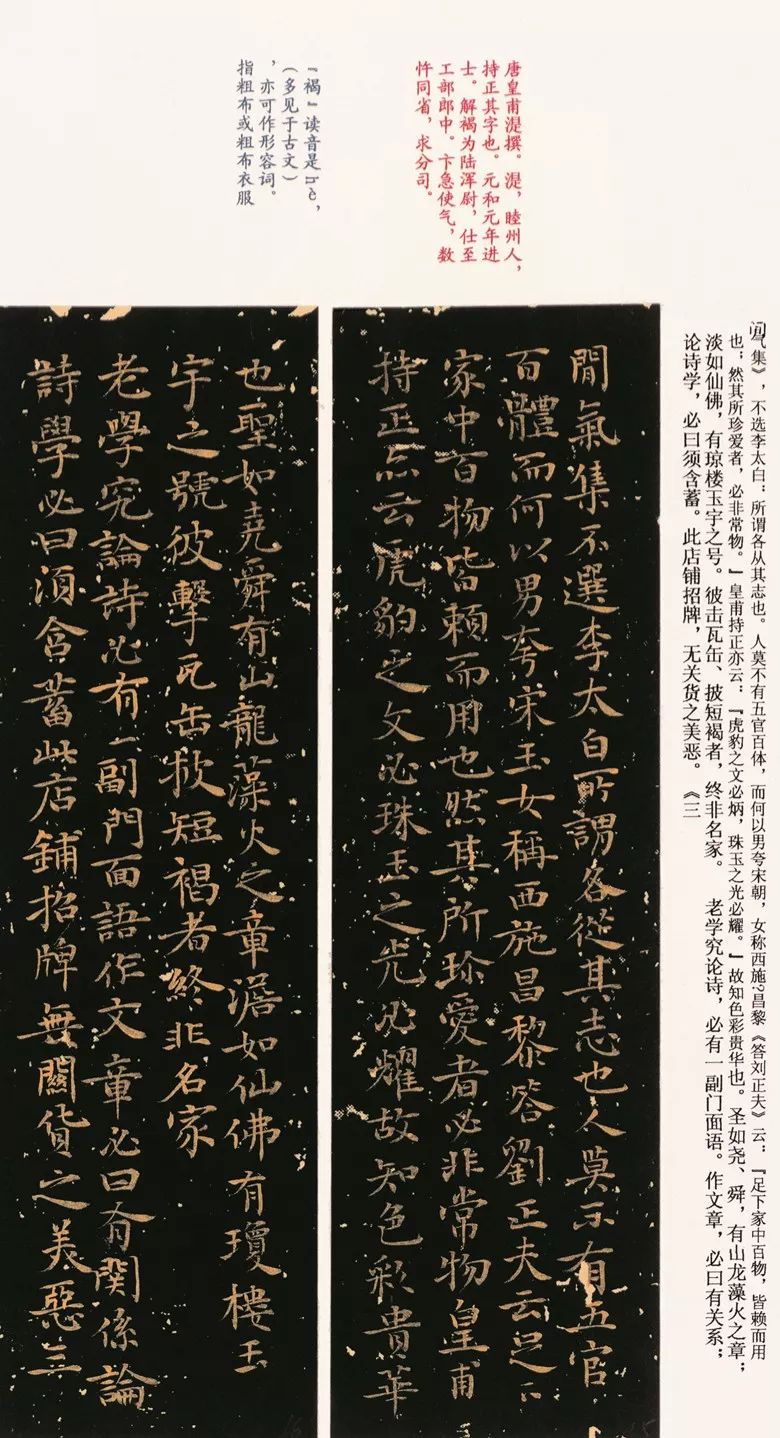 唐皇甫湜撰。湜，睦州人，
持正其字也。元和元年进
士。解褐为陆浑尉，仕至
工部郎中。卞急使气，数
忤同省，求分司。
『褐』读音是hè，
（多见于古文）
，亦可作形容词。
指粗布或粗布衣服
间气集》，不选李太白：所谓各从其志也。人莫不有五官百体，而何以男夸宋朝，女称西施?昌黎《答刘正夫》云：『足下家中百物，皆赖而用
也，然其所珍爱者，必非常物。』皇甫持正亦云：『虎豹之文必炳，珠玉之光必耀。』故知色彩贵华也。圣如尧、舜，有山龙藻火之章；
淡如仙佛，有琼楼玉宇之号。彼击瓦缶、披短褐者，终非名家。 老学究论诗，必有一副门面语。作文章，必曰有关系；
论诗学，必曰须含蓄。此店铺招牌，无关货之美恶。《三
閒氣集不選李太白所謂各從其志也人莫不有五官
百體而何以男夸宋玉女稱西施昌黎答劉正夫云足下
家中百物皆賴而用也然其所珍愛者必非常物皇甫
持正亦云虎豹之文必珠玉之光必耀故知色彩貴華
也聖如堯舜有山龍藻火之章澹如仙佛有瓊樓玉
宇之號彼擊瓦缶披短褐者終非名家
老學究論詩必有一副門面語作文章必曰有関係論
詩學必曰須含蓄此店鋪招牌無關貨之美惡三